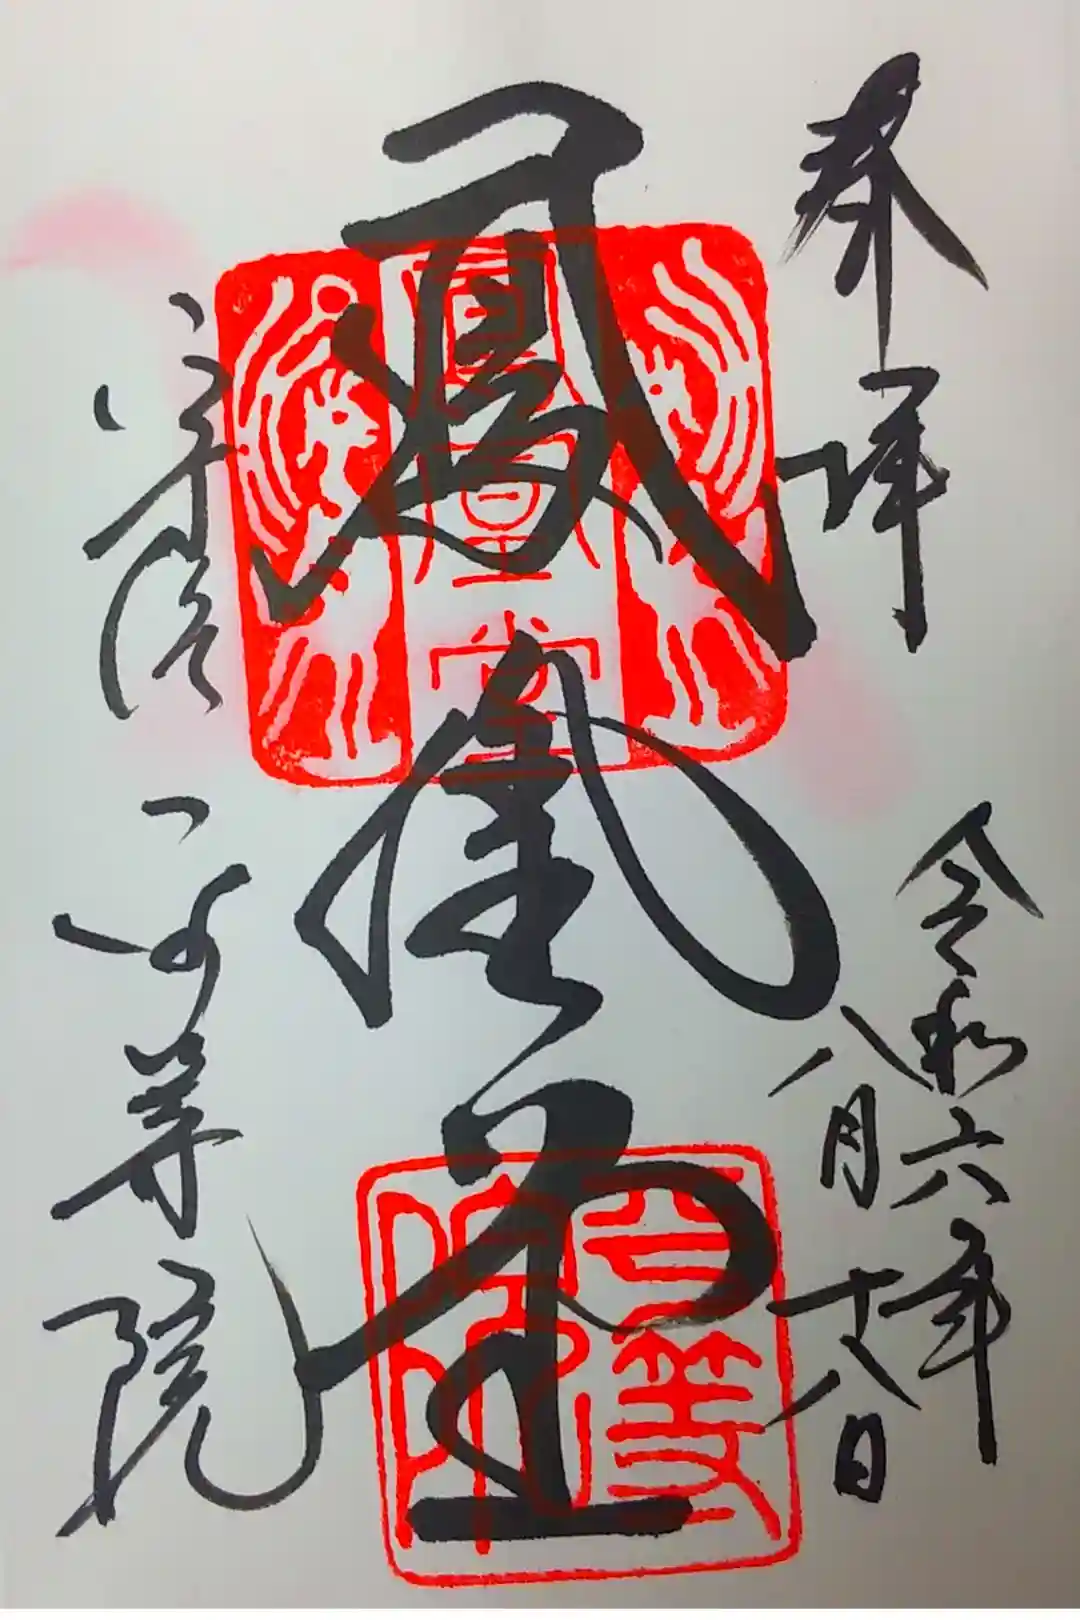 奉拝
令和六年
八月十八日
鳳凰堂
宇治
平等院
平等
院印